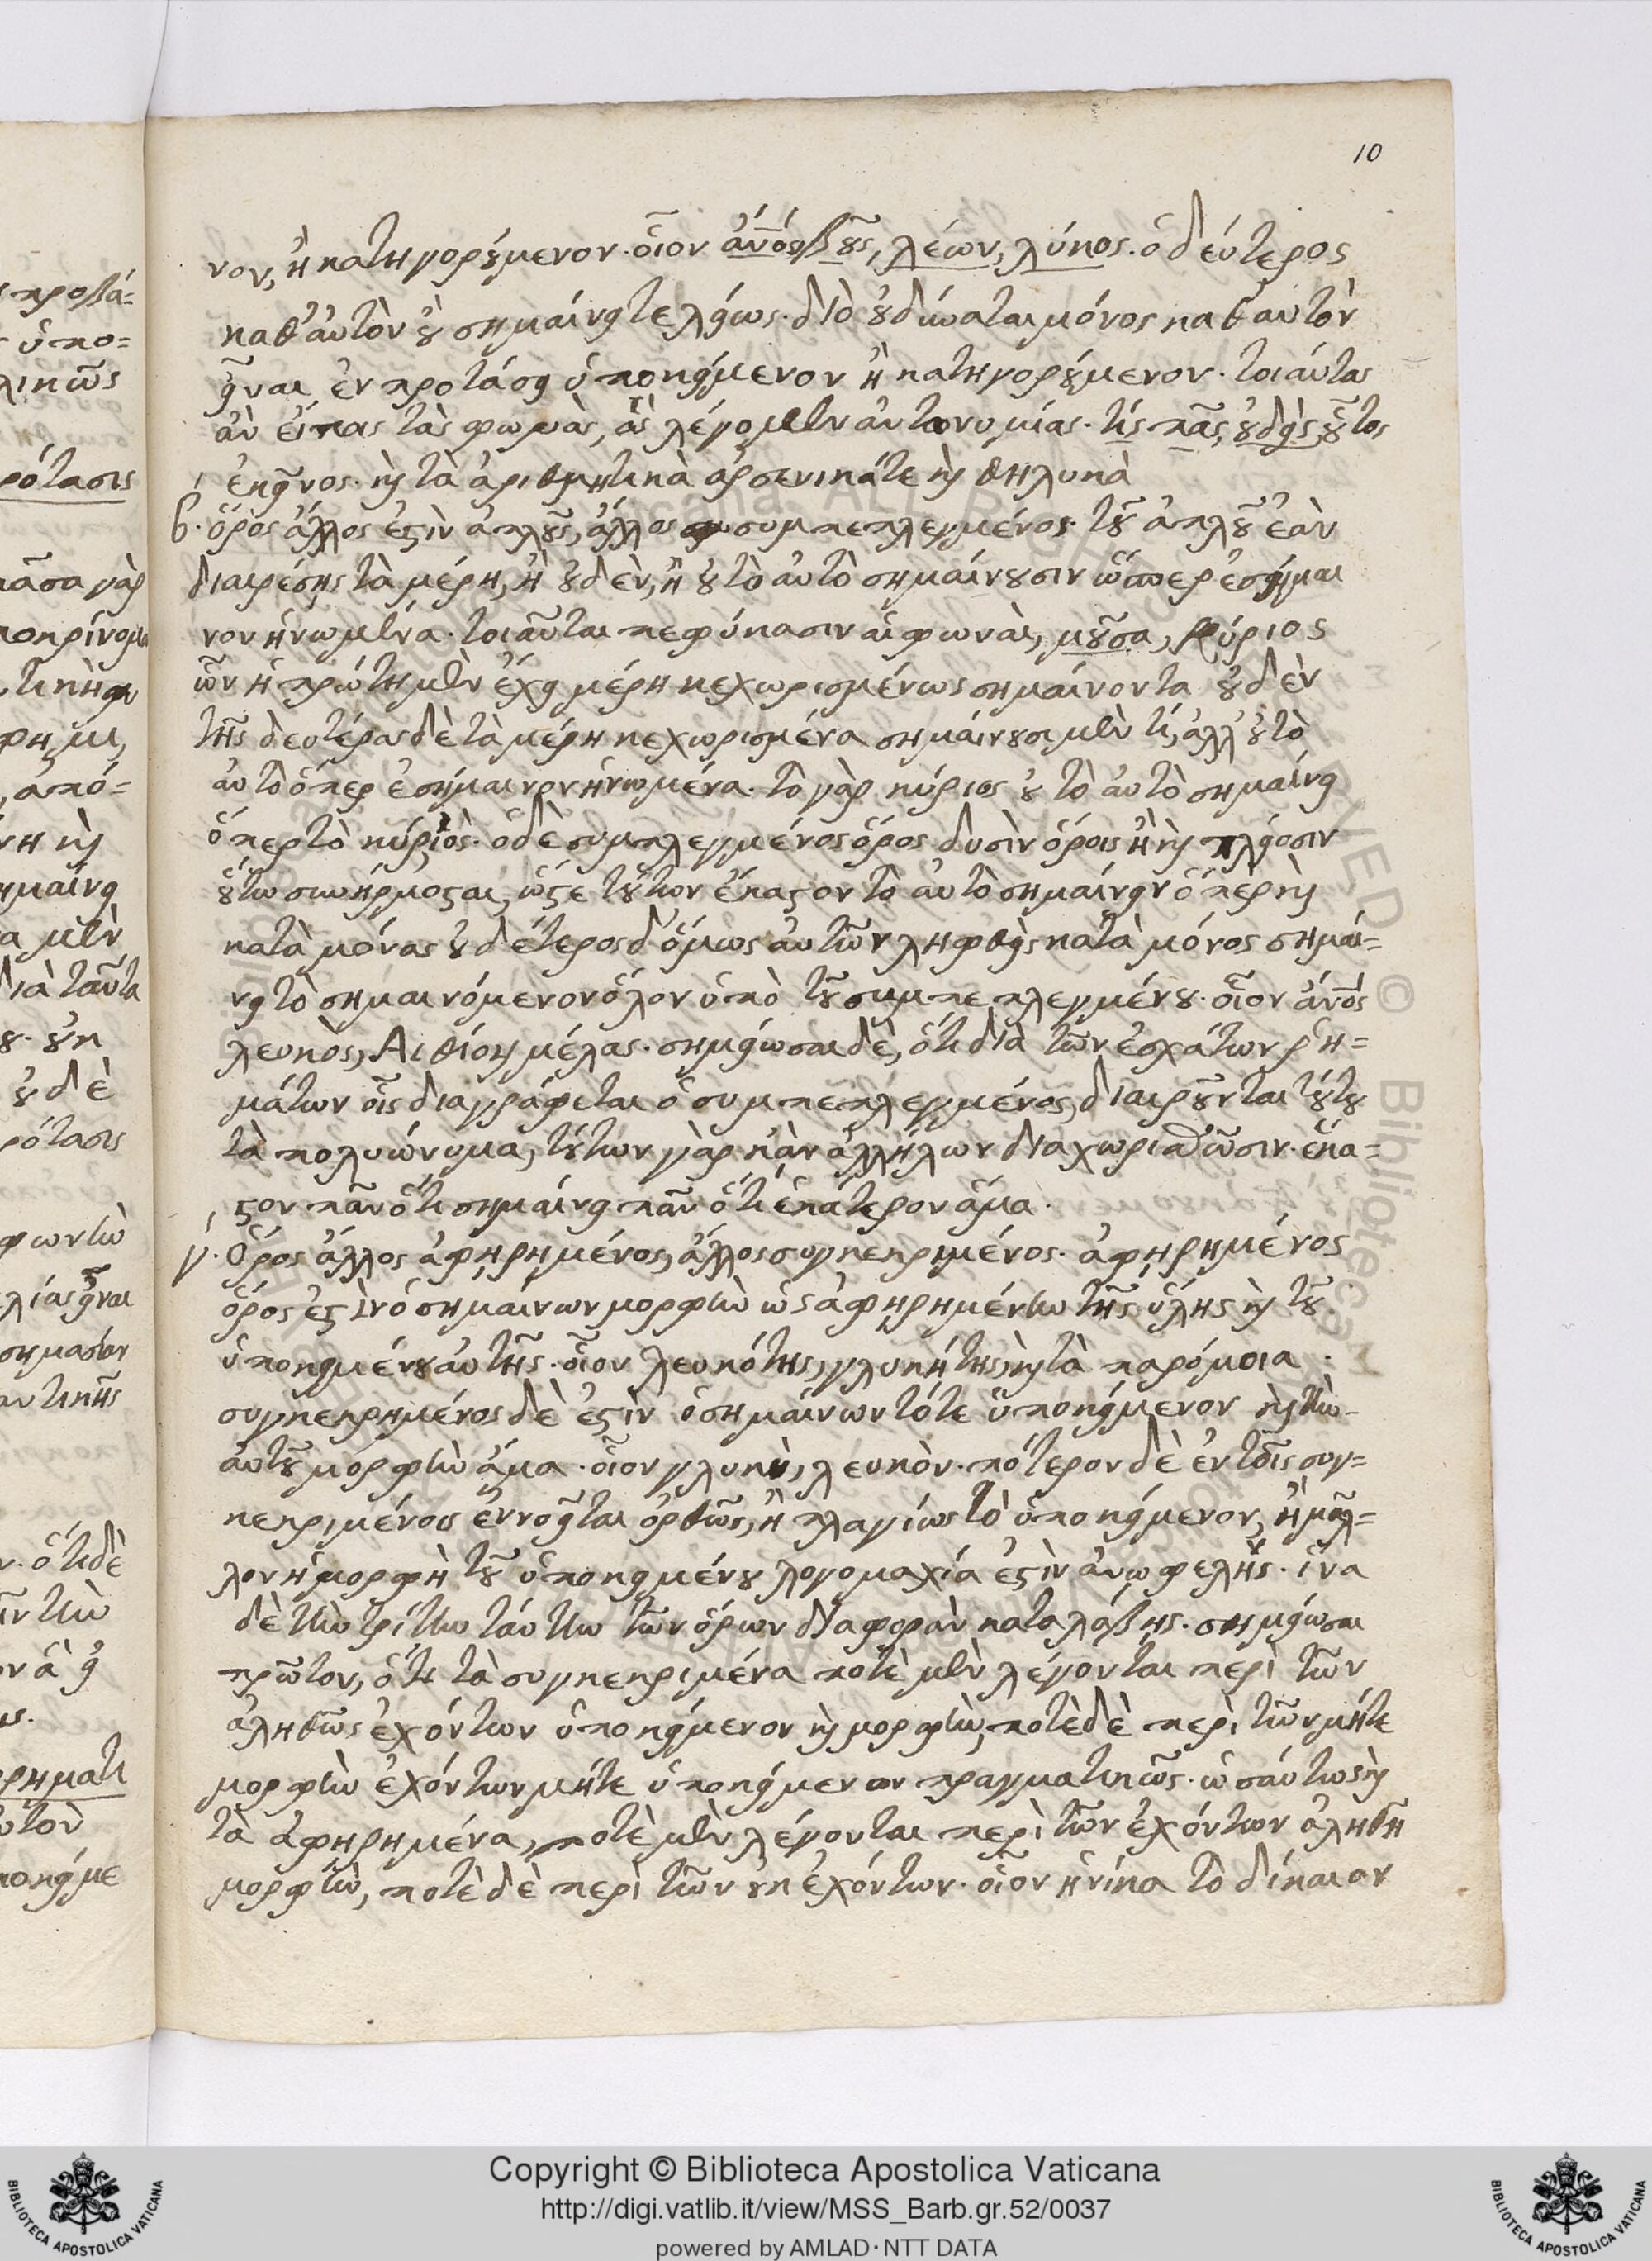 10
νον, ἢ κατηγορούμενον. οἷον ἄνος, βοῦς, λέων, λύκος. ὁ δεύτερος
καθ' αὑτὸν οὐ σημαίνει τελείως. διὸ οὐ δύναται μόνος καθ' αὑτὸν
εἶναι ἐν προτάσει ὑποκείμενον ἢ κατηγορούμενον. τοιαύτας
ἂν εἴπας τὰς φωνὰς, ἃς λέγομεν ἀντωνυμίας. τὶς πᾶς, οὐδεὶς, οὗτος
ἐκεῖνος. καὶ τὰ ἀριθμητικὰ ἀρσενικά τε καὶ θηλυκὰ
β. ὅρος ἄλλος ἐστὶν ἁπλοῦς, ἄλλος συμπεπλεγμένος. τοῦ ἁπλοῦ ἐὰν
διαιρέσης τὰ μέρη, ἢ οὐδὲν, ἢ οὐ τὸ αὐτὸ σημαίνουσιν ὥσπερ ἐσήμαι
νον ἡνωμένα. τοιαῦται πεφύκασιν αἱ φωναὶ, μοῦσα, κύριος
ὧν ἡ πρώτη μὲν ἔχει μέρη κεχωρισμένως σημαίνοντα οὐδὲν
τῆς δευτέρας δὲ τὰ μέρη κεχωρισμένα σημαίνουσι μὲν τί, ἀλλ' οὐ τὸ
αὐτὸ ὅπερ ἐσήμαινον ἡνωμένα. τὸ γὰρ κύριος οὐ τὸ αὐτὸ σημαίνει
ὅπερ τὸ κύρ ἰὸς. ὁ δὲ συμπλεγμένος ὅρος δυσὶν ὅροις ἢ καὶ πλείοσιν
οὕτω συνήρμοσται, ὥστε τούτων ἕκαστον τὸ αὐτὸ σημαίνειν ὅπερ καὶ
κατὰ μόνας οὐδέτερος δ' ὅμως αὐτῶν ληφθεὶς κατὰ μόνος σημαί=
νει τὸ σημαινόμενον ὅλον ὑπὸ τοῦ συμπεπλεγμένου. οἷον ἄνος
λευκὸς, Αἰθίοψ μέλας. σημείωσαι δὲ, ὅτι διὰ τῶν ἐσχάτων ῥη=
μάτων οἷς διαγράφεται ὁ συμπεπλεγμένος, διαιροῦνται τούτου
τὰ πολυώνυμα, τούτων γὰρ κἂν ἀλλήλων διαχωρισθῶσιν. ἕκα=
στον πᾶν ὅτι σημαίνει πᾶν ὅτι ἑκάτερον ἅμα.
γ. Ὅρος ἄλλος ἀφῃρημένος, ἄλλος συγκεκριμένος. ἀφῃρημένος
ὅρος ἐστὶν ὁ σημαίνων μορφὴν ὡς ἀφῃρημένην τῆς ὕλης καὶ τοῦ
ὑποκειμένου αὐτῆς. οἷον λευκότης, γλυκήτης, καὶ τὰ παρόμοια.
συγκεκρημένος δὲ ἐστὶν ὁ σημαίνων τό τε ὑποκείμενον καὶ τὴν
αὐτοῦ μορφὴν ἅμα. οἷον γλυκὺ, λευκὸν. πότερον δὲ ἐν τοῖς συγ=
κεκριμένοις ἐννοεῖται ὀρθῶς, ἢ πλαγίως τὸ ὑποκείμενον, ἢ μᾶλ=
λον ἡ μορφὴ τοῦ ὑποκειμένου λογομαχία ἐστὶν ἀνωφελής. ἵνα
δὲ τὴν τρίτην ταύτην τῶν ὅρων διαφορὰν καταλάβης. σημείωσαι
πρῶτον, ὅτι τὰ συγκεκριμένα ποτὲ μὲν λέγονται περὶ τῶν
ἀληθῶς ἐχόντων ὑποκείμενον καὶ μορφὴν, ποτὲ δὲ περὶ τῶν μήτε
μορφὴν ἐχόντων μήτε ὑποκείμενον πραγματικῶς. ὡσαύτως καὶ
τὰ ἀφῃρημένα, ποτὲ μὲν λέγονται περὶ τῶν ἐχόντων ἀληθῆ
μορφὴν, ποτὲ δὲ περὶ τῶν οὐκ ἐχόντων. οἷον ἡνίκα τὸ δίκαιον
Copyright © Biblioteca Apostolica Vaticana
http://digi.vatlib.it/view/MSS_Barb.gr.52/0037
powered by AMLAD·NTT DATA